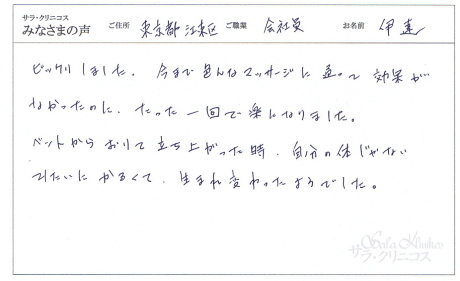 サラ・クリニコス
みなさまの声 ご住所 東京都江東区 ご職業 会社員 お名前 伊達
ビックリしました。今まで色んなマッサージに通って効果が
なかったのに、たった一回で楽になりました。
ベットからおりて立ち上がった時、自分の体じゃない
みたいにかるくて、生まれ変わったようでした。
Sala Klinikos
サラ・クリニコス